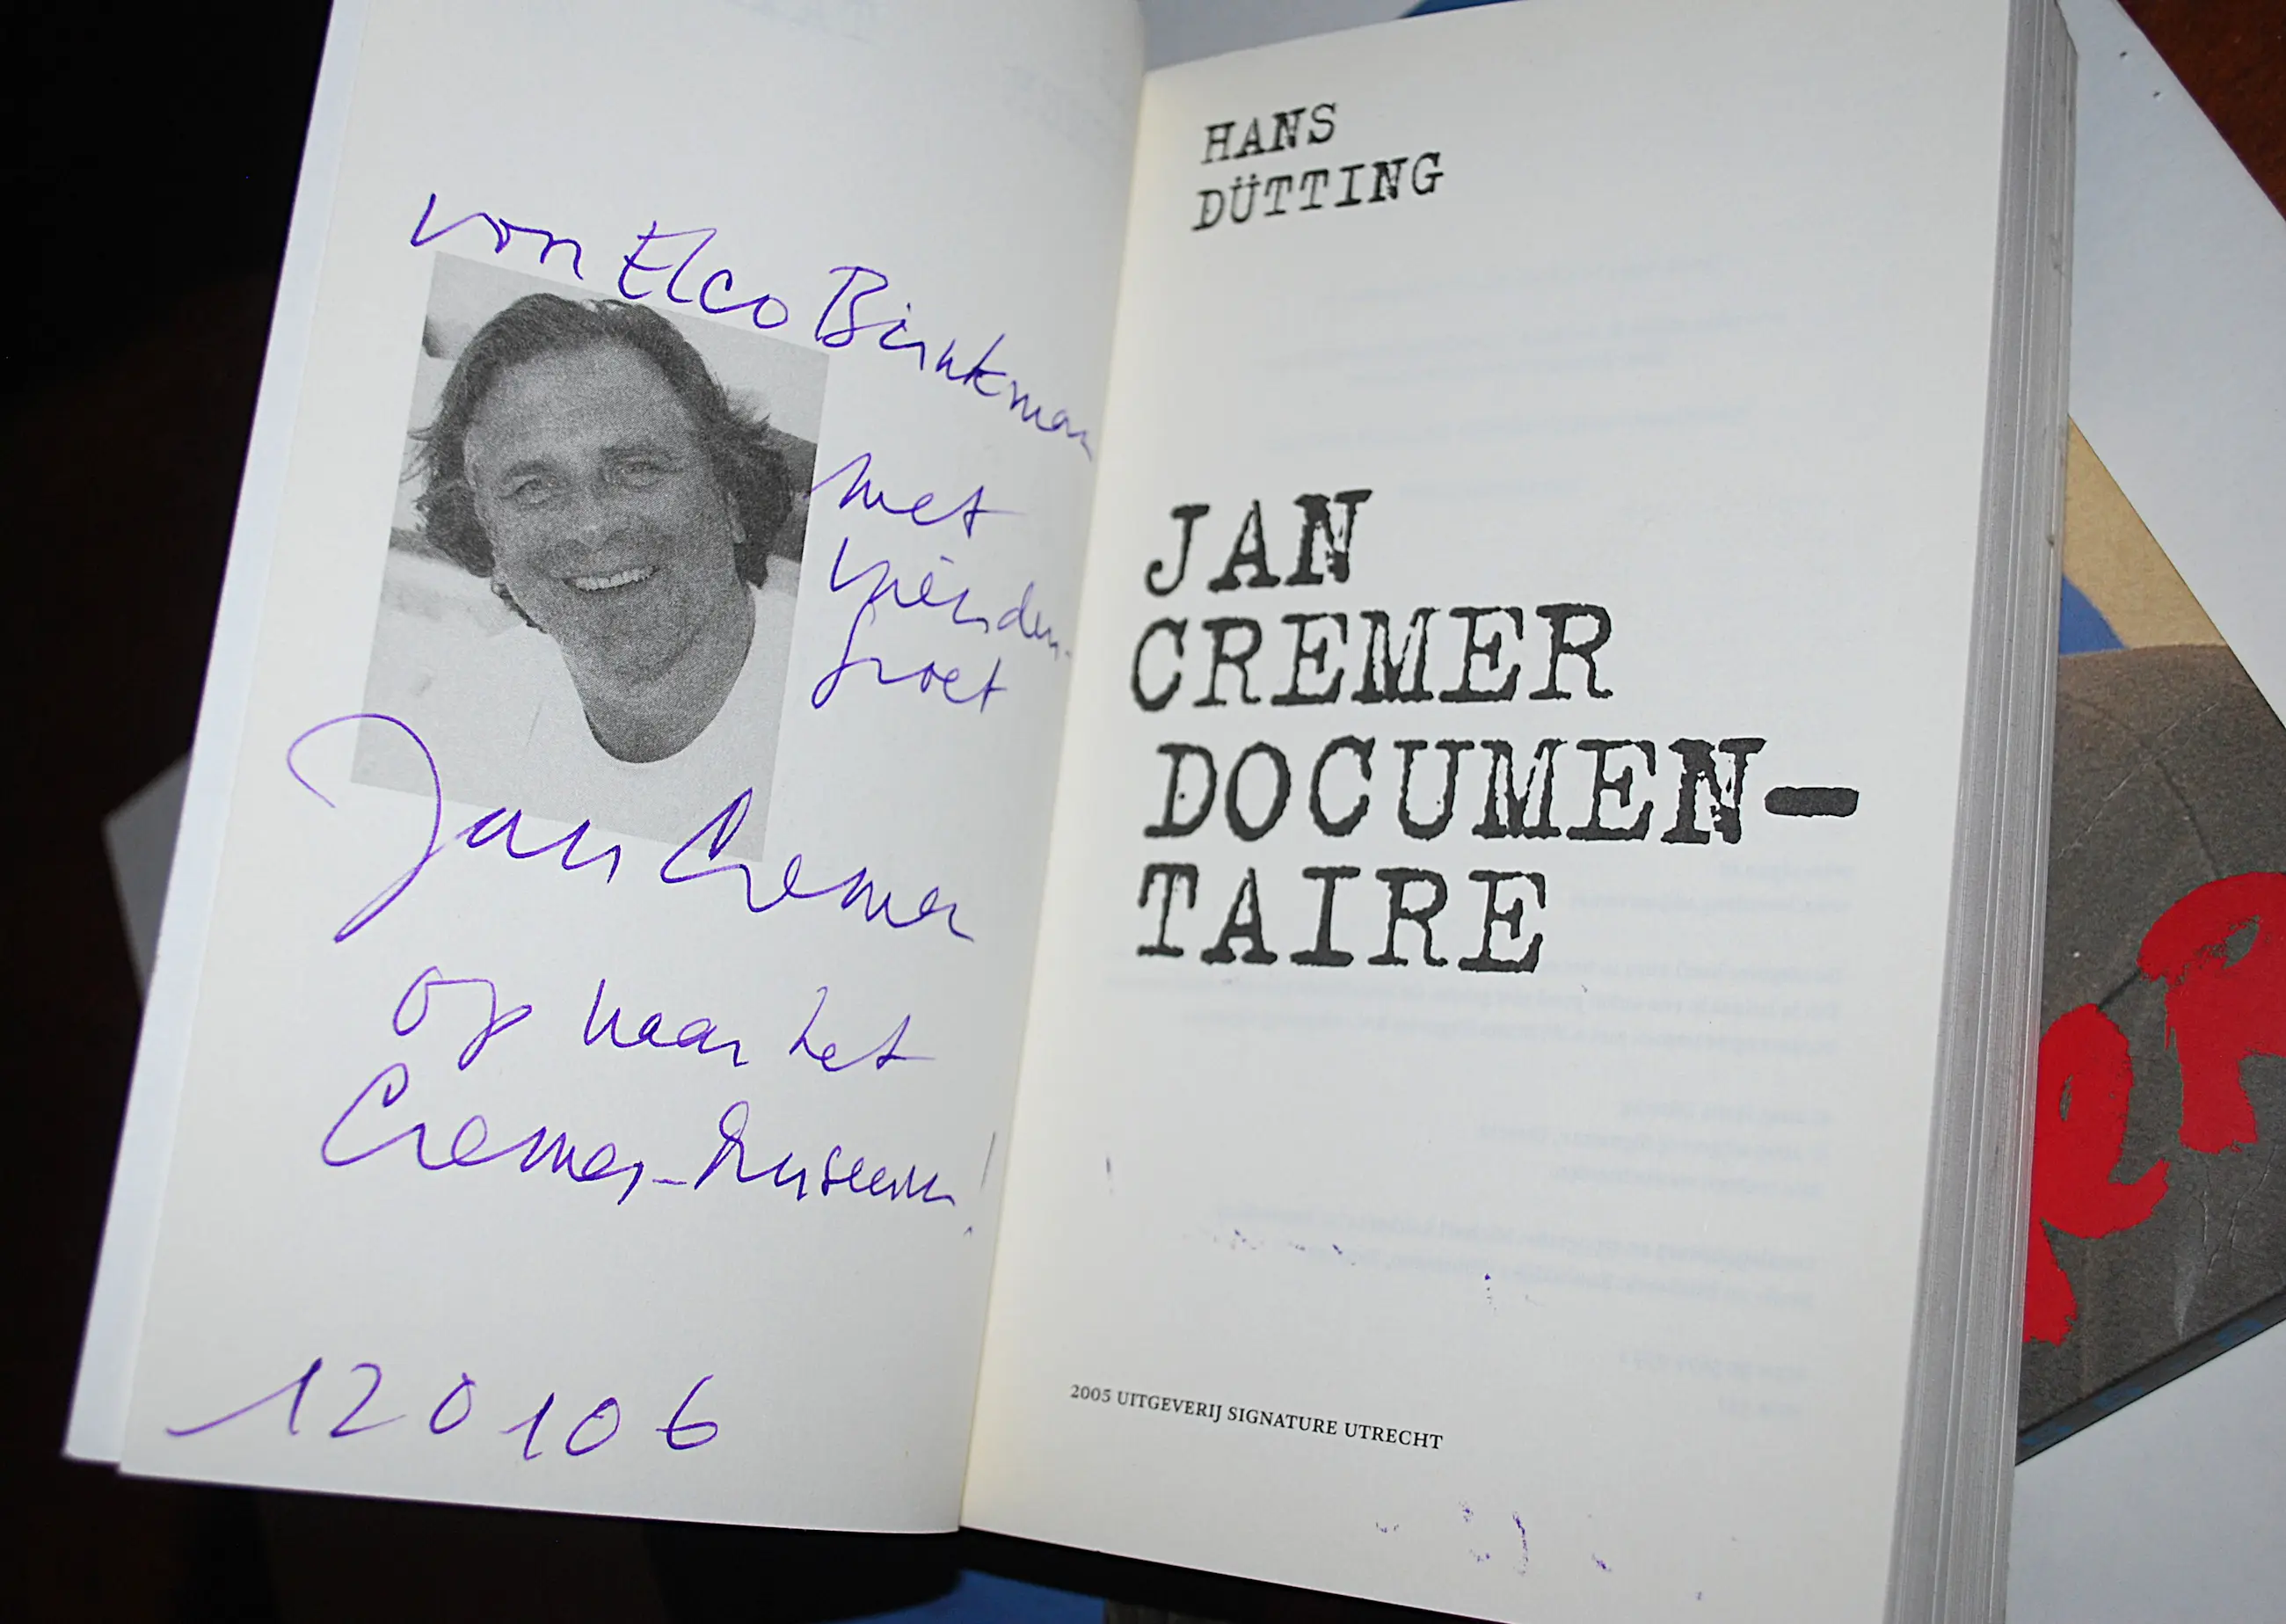 von Elco Brinkman
met
vrienden-
groet
Jan Cremer
op naar het
Cremer-Museum!
120106
HANS
DÜTTING
JAN
CREMER
DOCUMEN-
TAIRE
2005 UITGEVERIJ SIGNATURE UTRECHT